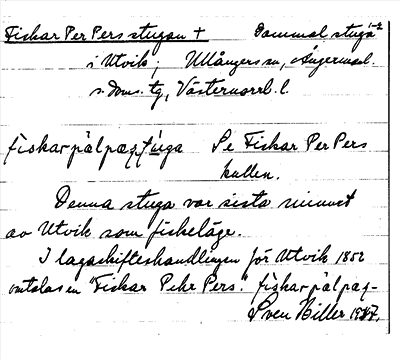 Fiskar Per Persstugan + Gammal stuga
i Utvik, Ullångers sn, Ångermanl.
s. doms. tg, Västernorrl. l.
fiskar pälpæṣtúga Se Fiskar Per Pers
kullen.
Denna stuga var sista minnet
av Utvik som fiskeläge.
I lagaskifteshandlingen för Utvik 1852
omtalas en "Fiskar Pehr Pers." fiskar pälpæṣ-
Sven Hiller 1937.